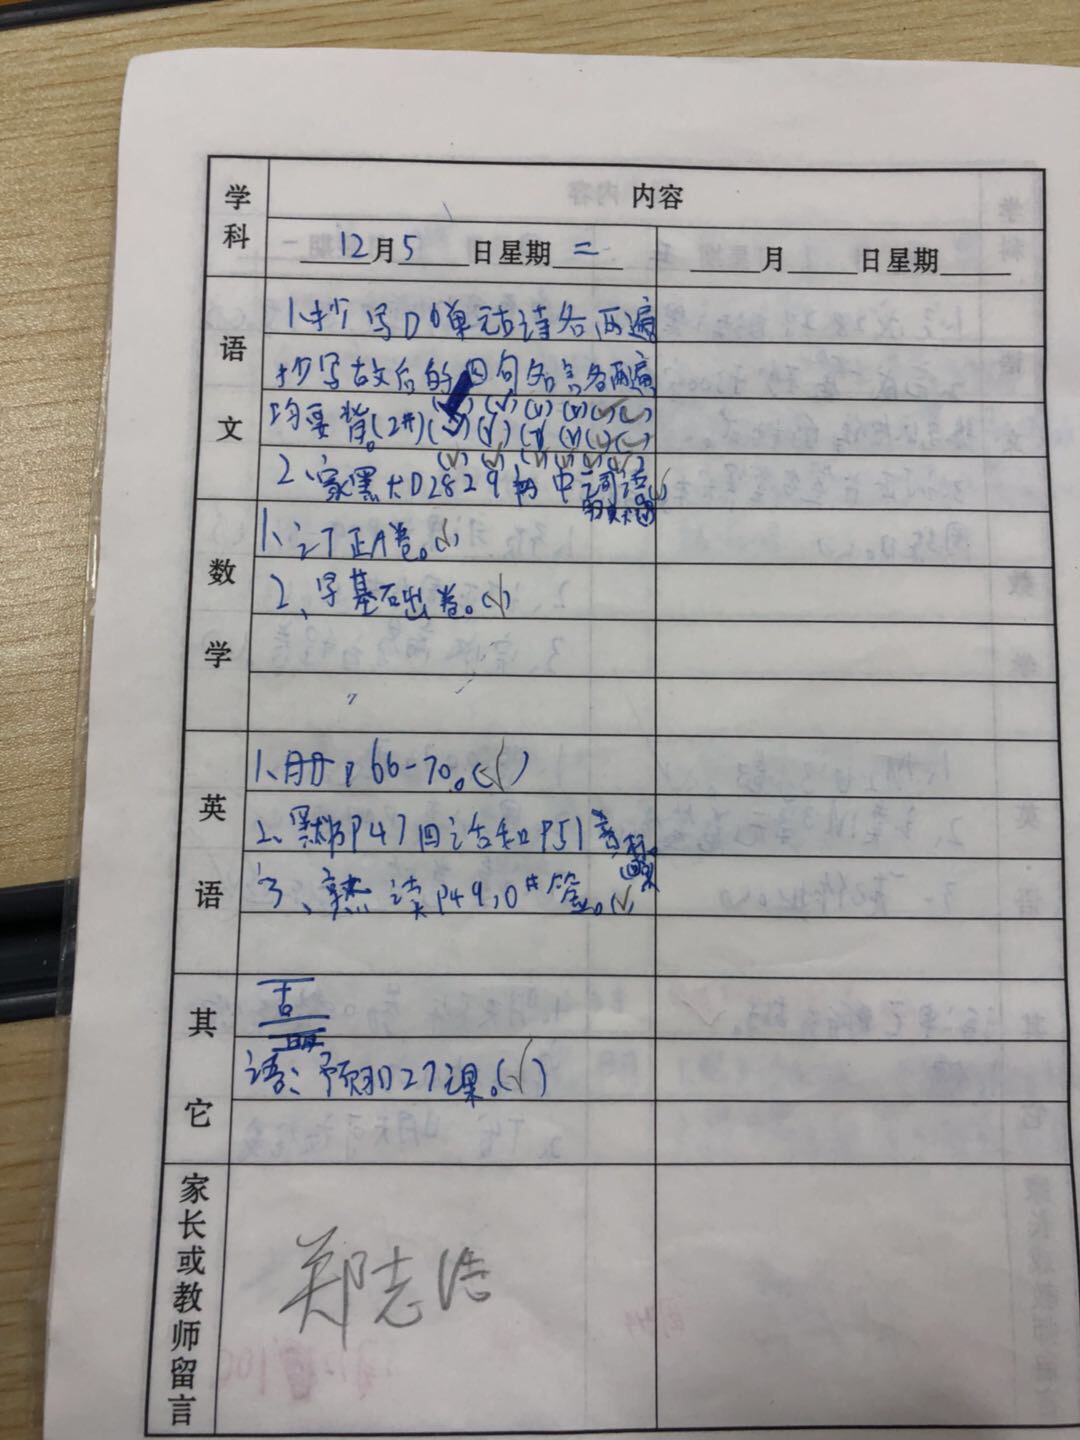 学科
内容
12月5日星期二
月 日星期
语文
1、抄写D6单元古诗各两遍
抄写故后的四句名言各两遍
均要背。(2#)(√)(√)(√)(√)(√)(√)
2、家黑大D28 29 中词语
数学
1、订正A卷。(√)
2、字基石出卷。(√)
英语
1、册P66-70。(√)
2、默P47回话和P51
3、熟读P49,0#签。(√)
其它
语:预习D27课。(√)
家长或教师留言
郑志浩